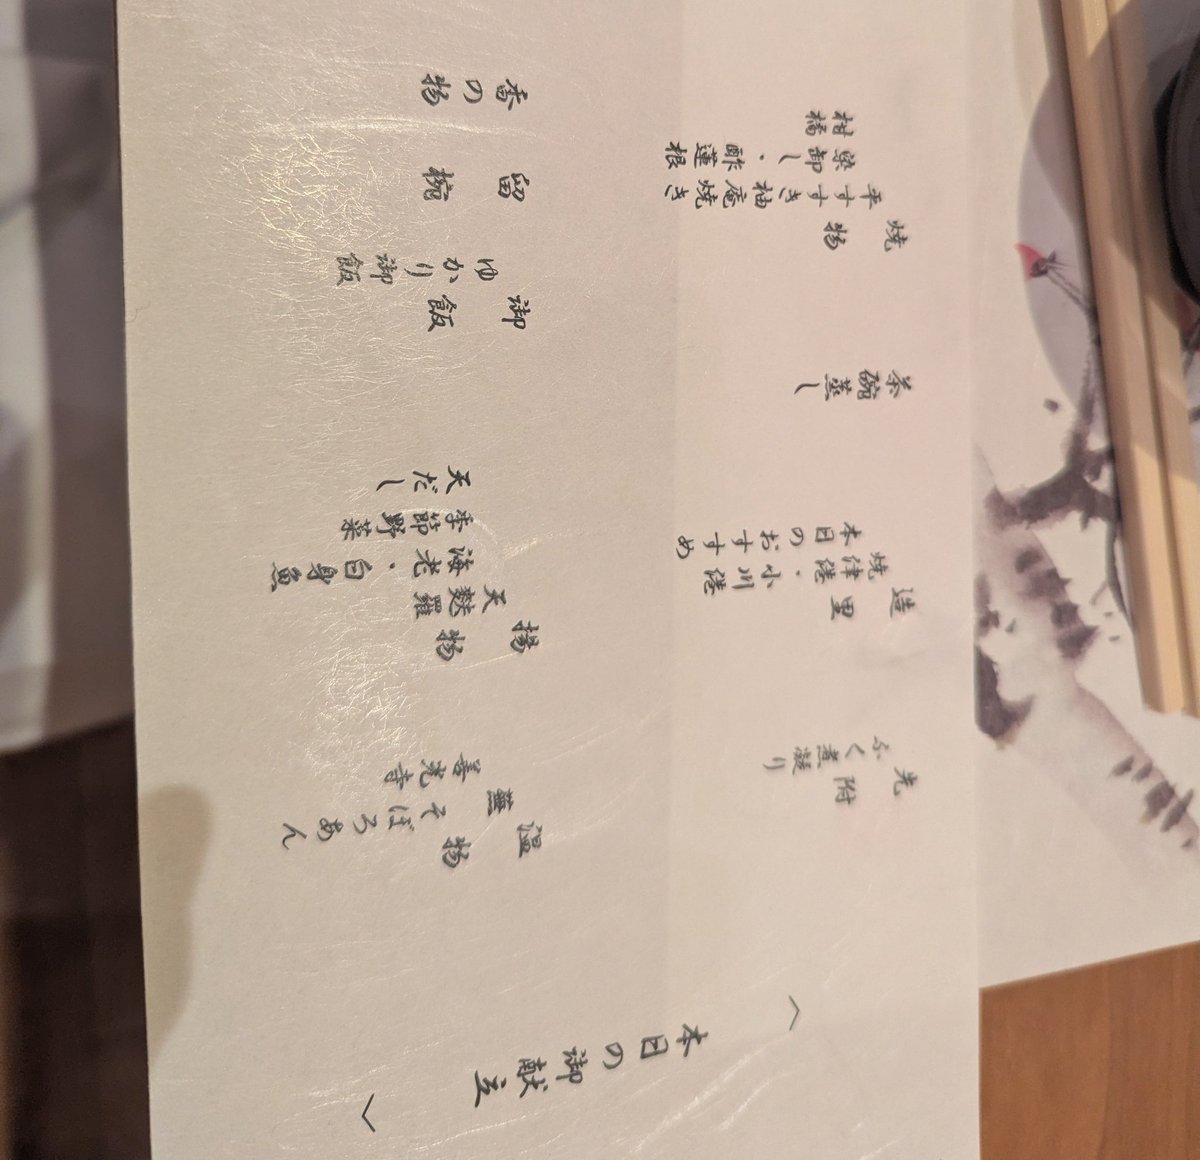 〈本日の御献立〉
先附
ふく煮凝り
造里
焼津港・小川港
本日のおすすめ
茶碗蒸し
焼物
平すずき柚庵焼き
染卸し・酢蓮根
柑橘
温物
蕪そぼろあん
善光寺
揚物
天麩羅
海老・白身魚
季節野菜
天だし
御飯
ゆかり御飯
留椀
香の物